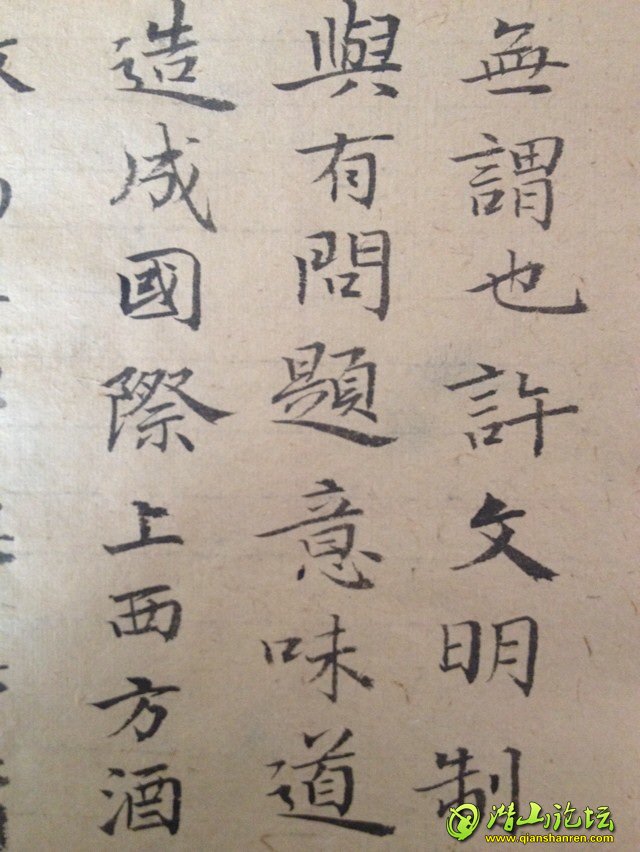 無謂也許文明制
與有問題意味道
造成國際上西方酒
潜山论坛
www.qianshanren.com